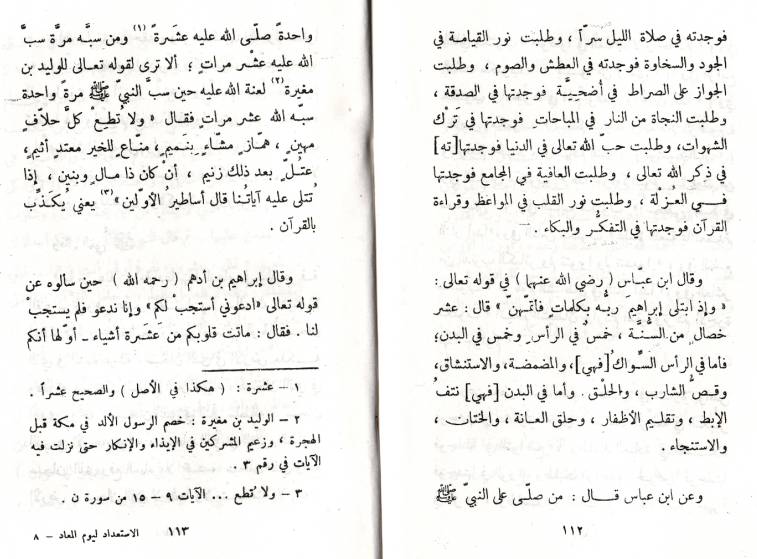 فوجدته في صلاة الليل سرّاً ، وطلبت نور القيامة في
الجود والسخاوة فوجدته في العطش والصوم ، وطلبت
الجواز على الصراط في أضحيـيَّة فوجدتها في الصدقة ،
وطلبت النجاة من النار في المباحات فوجدتها في تَرْك
الشهوات، وطلبت حبّ الله تعالى في الدنيا فوجدتها[ته]
في ذكر الله تعالى ، وطلبت العافية في المجامع فوجدتها
فـي العُـزْلة ، وطلبت نور القلب في المواعظ وقراءة
القرآن فوجدتها في التفكُّر والبكاء .
وقال ابن عبّاس ( رضي الله عنهما ) في قوله تعالى :
« وإذ ابتلى إبراهيمَ ربُّه بكلماتٍ فأتمّهنّ » قال : عشر
خصال من السُّنَّة ، خمسٌ في الرأس وخمس في البدن؛
فأما في الرأس السِّواكُ [فهي]، والمضمضة، والاستنشاق،
وقصُّ الشارب ، والحلق . وأما في البدن [فهي] نتفُ
الإبط ، وتقليم الأظفار ، وحلق العانة ، والختان ،
والاستنجاء .
وعن ابن عباس قال : من صلّى على النبيّ ﷺ
١١٢
واحدةً صلّى الله عليه عَشَرةً (١) ومن سبَّه مرَّة سبَّ
الله عليه عشر مرات ؛ ألا ترى لقوله تعالى للوليد بن
مغيرة (٢) لعنة الله عليه حين سبَّ النبيّ ﷺ مرةً واحدة
سبّه الله عشر مرات فقال « ولا تُطِعْ كلَّ حلاّفٍ
مهينٍ ، همّازٍ مشّاءٍ بنميمٍ ، منّاعٍ للخير معتدٍ أثيمٍ ،
عتُلٍّ بعد ذلك زنيم ، أنْ كان ذا مالٍ وبنين ، إذا
تُتلى عليه آياتُنا قال أساطيرُ الأوّلين » (٣) يعني يُكَذِّب
بالقرآن .
وقال إبراهيم بن أدهم ( رحمه الله ) حين سألوه عن
قوله تعالى «ادعوني أستجبْ لكم» وإنا ندعو فلم يستجبْ
لنا . فقال : ماتت قلوبكم من عَشَرة أشياء ـ أوّلها أنكم
١ ـ عشرة : ( هكذا في الأصل ) والصحيح عشراً .
٢ ـ الوليد بن مغيرة : خصم الرسول الألد في مكة قبل
الهجرة ، وزعيم المشركين في الإيذاء والإنكار حتى نزلت فيه
الآيات في رقم ٣ .
٣ ـ ولا تُطع ... الآيات ٩ ـ ١٥ من سورة ن .
١١٣ الاستعداد ليوم المعاد ـ ٨